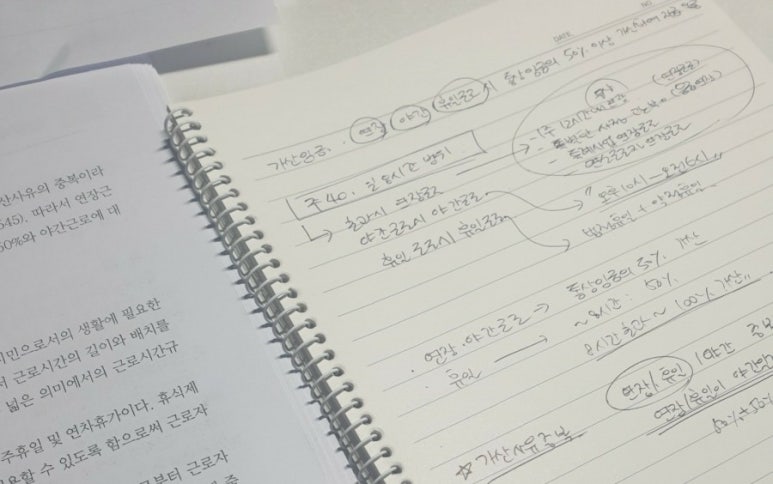 상사유의 중복이라
545). 따라서 연장근
50%와 야간근로에 대
시민으로서의 생활에 필요한
서 근로시간의 길이와 배치를
넓은 의미에서의 근로시간규
주휴일 및 연차휴가이다. 휴식제
용할 수 있도록 함으로써 근로자
로부터 근로자
DATE
NO.
가산임금. 연장 야간 휴일근로시 통상임금의 50% 이상 가산하여 지급
주40. 일 8시간 범위
↳ 초과시 연장근로
야간근로시 야간근로
휴일 근로시 휴일근로
1주 12시간 연장
(연장근로)
특별한 사정
특별사업 연장근로
연소근로자 연장근로
"오후10시~오전6시"
법정휴일 + 약정휴일
· 연장·야간근로 → 통상임금의 50% 가산
· 휴일 → ~8시간: 50%
8시간 초과~ 100% 가산"
연장/휴일 / 야간 중복
연장/휴일이 야간
50%+50%
☆ 가산사유중복